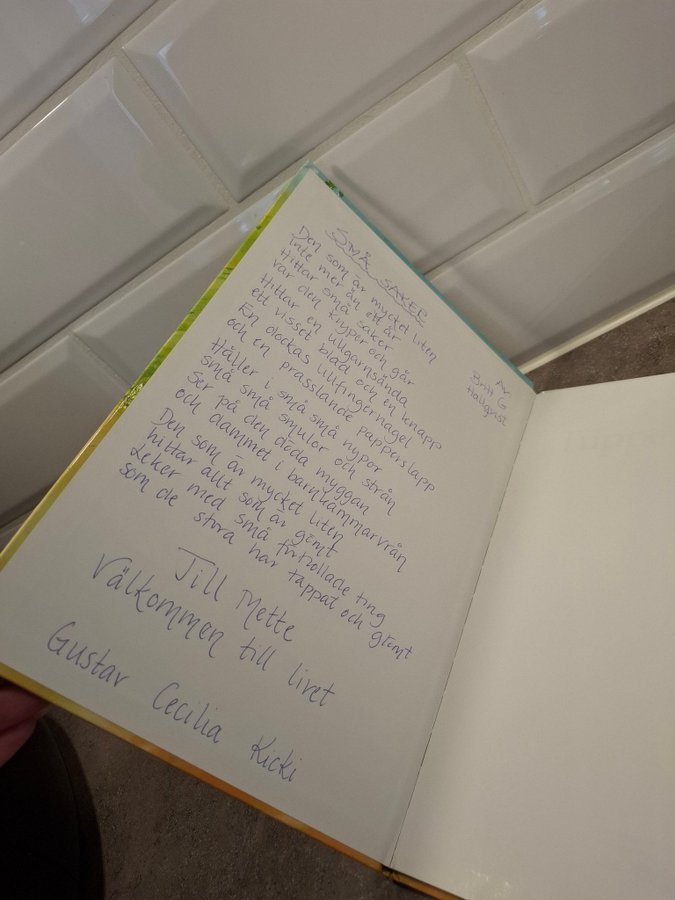 SMÅ SAKER
Den som är mycket liten
inte mer än ett år
Hittar små saker
var den kryper och går
Hittar en ullgarnsända
ett visset blad och en knapp
En dockas lillfingernagel
och en prasslande papperslapp
Håller i små små nypor
små små smulor och strån
Ser på den döda myggan
och dammet i barnkammarvrån
Den som är mycket liten
hittar allt som är gömt
Leker med små förtrollade ting
som de stora har tappat och glömt
Av
Britt G
Hallqvist
Till Mette
Välkommen till livet
Gustav Cecilia Kicki